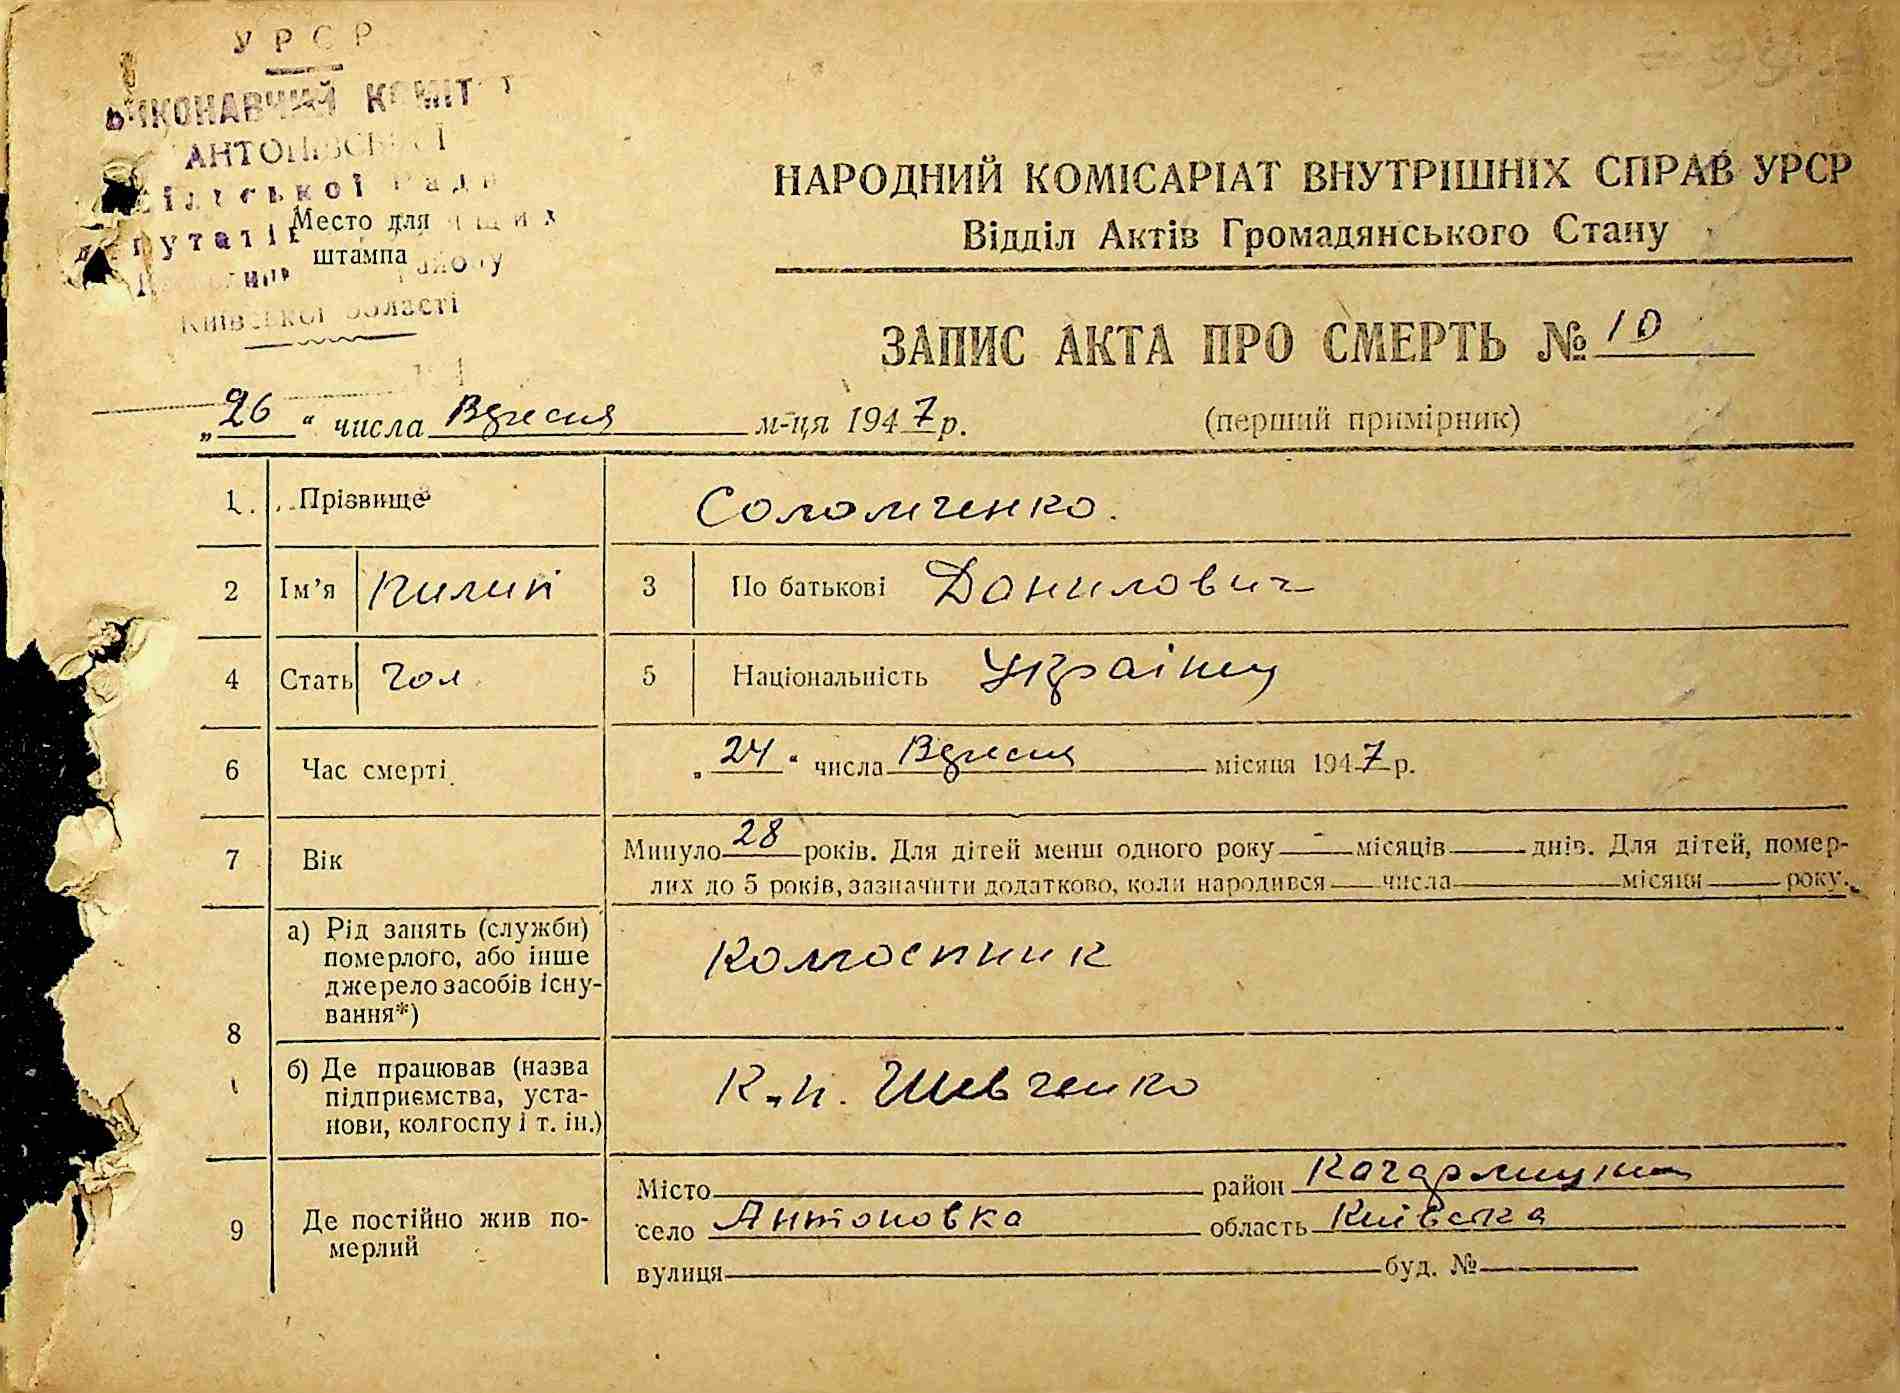 УРСР
ВИКОНАВЧИЙ КОМІТЕТ
АНТОНІВСЬКОЇ
сільської Ради
депутатів трудящих
району
Київської області
Место для
штампа
НАРОДНИЙ КОМІСАРІАТ ВНУТРІШНІХ СПРАВ УРСР
Відділ Актів Громадянського Стану
ЗАПИС АКТА ПРО СМЕРТЬ № 10
„26“ числа Вересня м-ця 1947 р.
(перший примірник)
1. Прізвище Соломченко.
2 Ім'я Пилип 3 По батькові Данилович
4 Стать чол 5 Національність Українец
6 Час смерті „24“ числа Вересня місяця 1947 р.
7 Вік Минуло 28 років. Для дітей менш одного року - місяців днів. Для дітей, помер-
лих до 5 років, зазначити додатково, коли народився числа місяця року.
8 а) Рід занять (служби)
померлого, або інше
джерело засобів існу-
вання*)
Колгоспник
б) Де працював (назва
підприємства, уста-
нови, колгоспу і т. ін.)
К-п. Шевченко
9 Де постійно жив по-
мерлий
Місто район
село Антоновка область Київська
вулиця буд. №